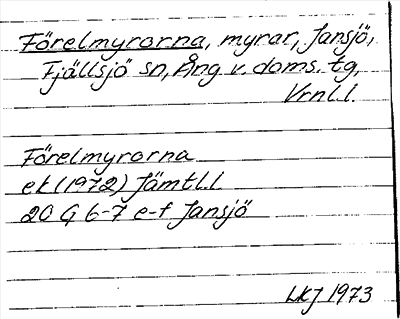 Förelmyrorna, myrar, Jansjö,
Fjällsjö sn, Ång v. doms. tg,
Vrnl.l.
Förelmyrorna
ek (1972) Jämtl.l.
20 G 6-7 e-f Jansjö
LKJ 1973